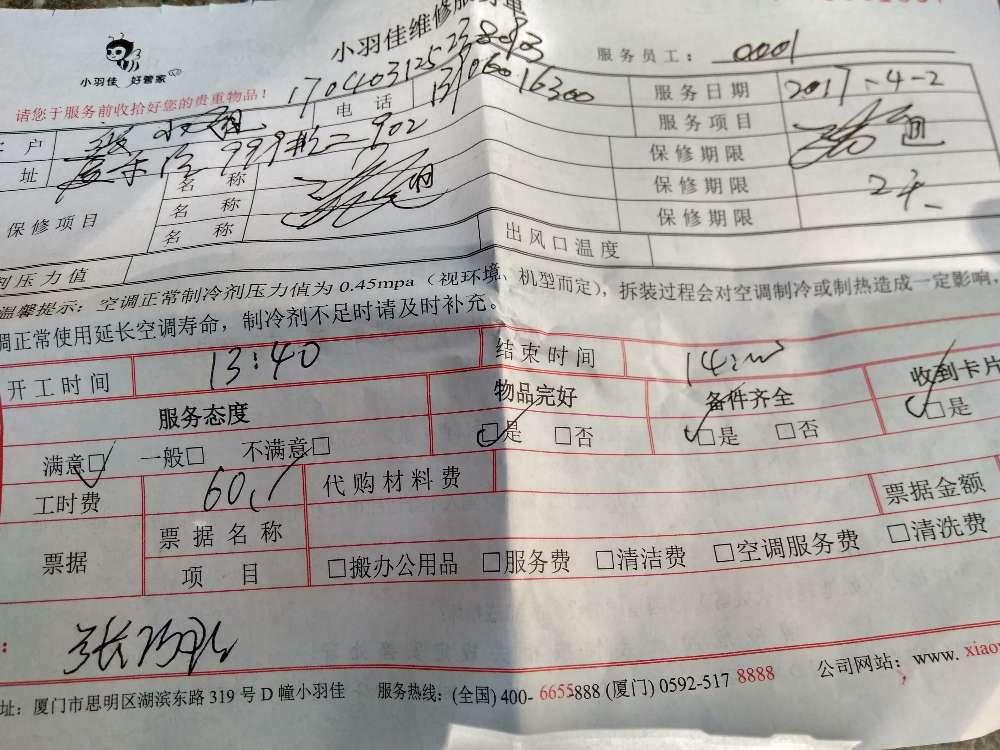 小羽佳维修服务单
小羽佳 好管家
服务员工： 0001
请您于服务前收拾好您的贵重物品！
电 话
服务日期 2017-4-2
户
服务项目
址
名 称
保修期限
保修项目
名 称
保修期限 2天
名 称
保修期限
剂压力值
出风口温度
温馨提示：空调正常制冷剂压力值为 0.45mpa（视环境、机型而定），拆装过程会对空调制冷或制热造成一定影响，
调正常使用延长空调寿命，制冷剂不足时请及时补充。
开工时间 13:40 结束时间
服务态度 物品完好 备件齐全 收到卡片
满意□ 一般□ 不满意□ □是 □否 □是 □否 □是
工时费 60 代购材料费
票据金额
票据 票据名称
项 目 □搬办公用品 □服务费 □清洁费 □空调服务费 □清洗费
址：厦门市思明区湖滨东路 319 号 D 幢小羽佳 服务热线：(全国) 400-6655888 (厦门) 0592-517 8888 公司网站：www. xiao